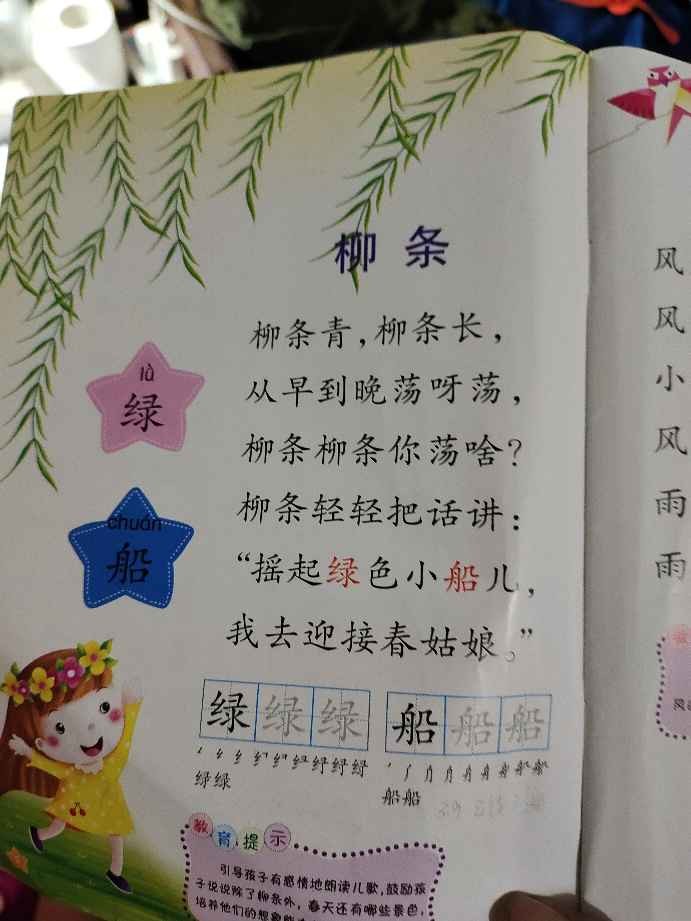 柳条
柳条青，柳条长，
从早到晚荡呀荡，
柳条柳条你荡啥？
柳条轻轻把话讲：
“摇起绿色小船儿，
我去迎接春姑娘。”
lǜ
绿
chuán
船
绿绿绿
船船船
绿绿
船船
教育提示
引导孩子有感情地朗读儿歌，鼓励孩
子说说除了柳条外，春天还有哪些景色，
培养他们的想象能
风
风
小
风
雨
雨